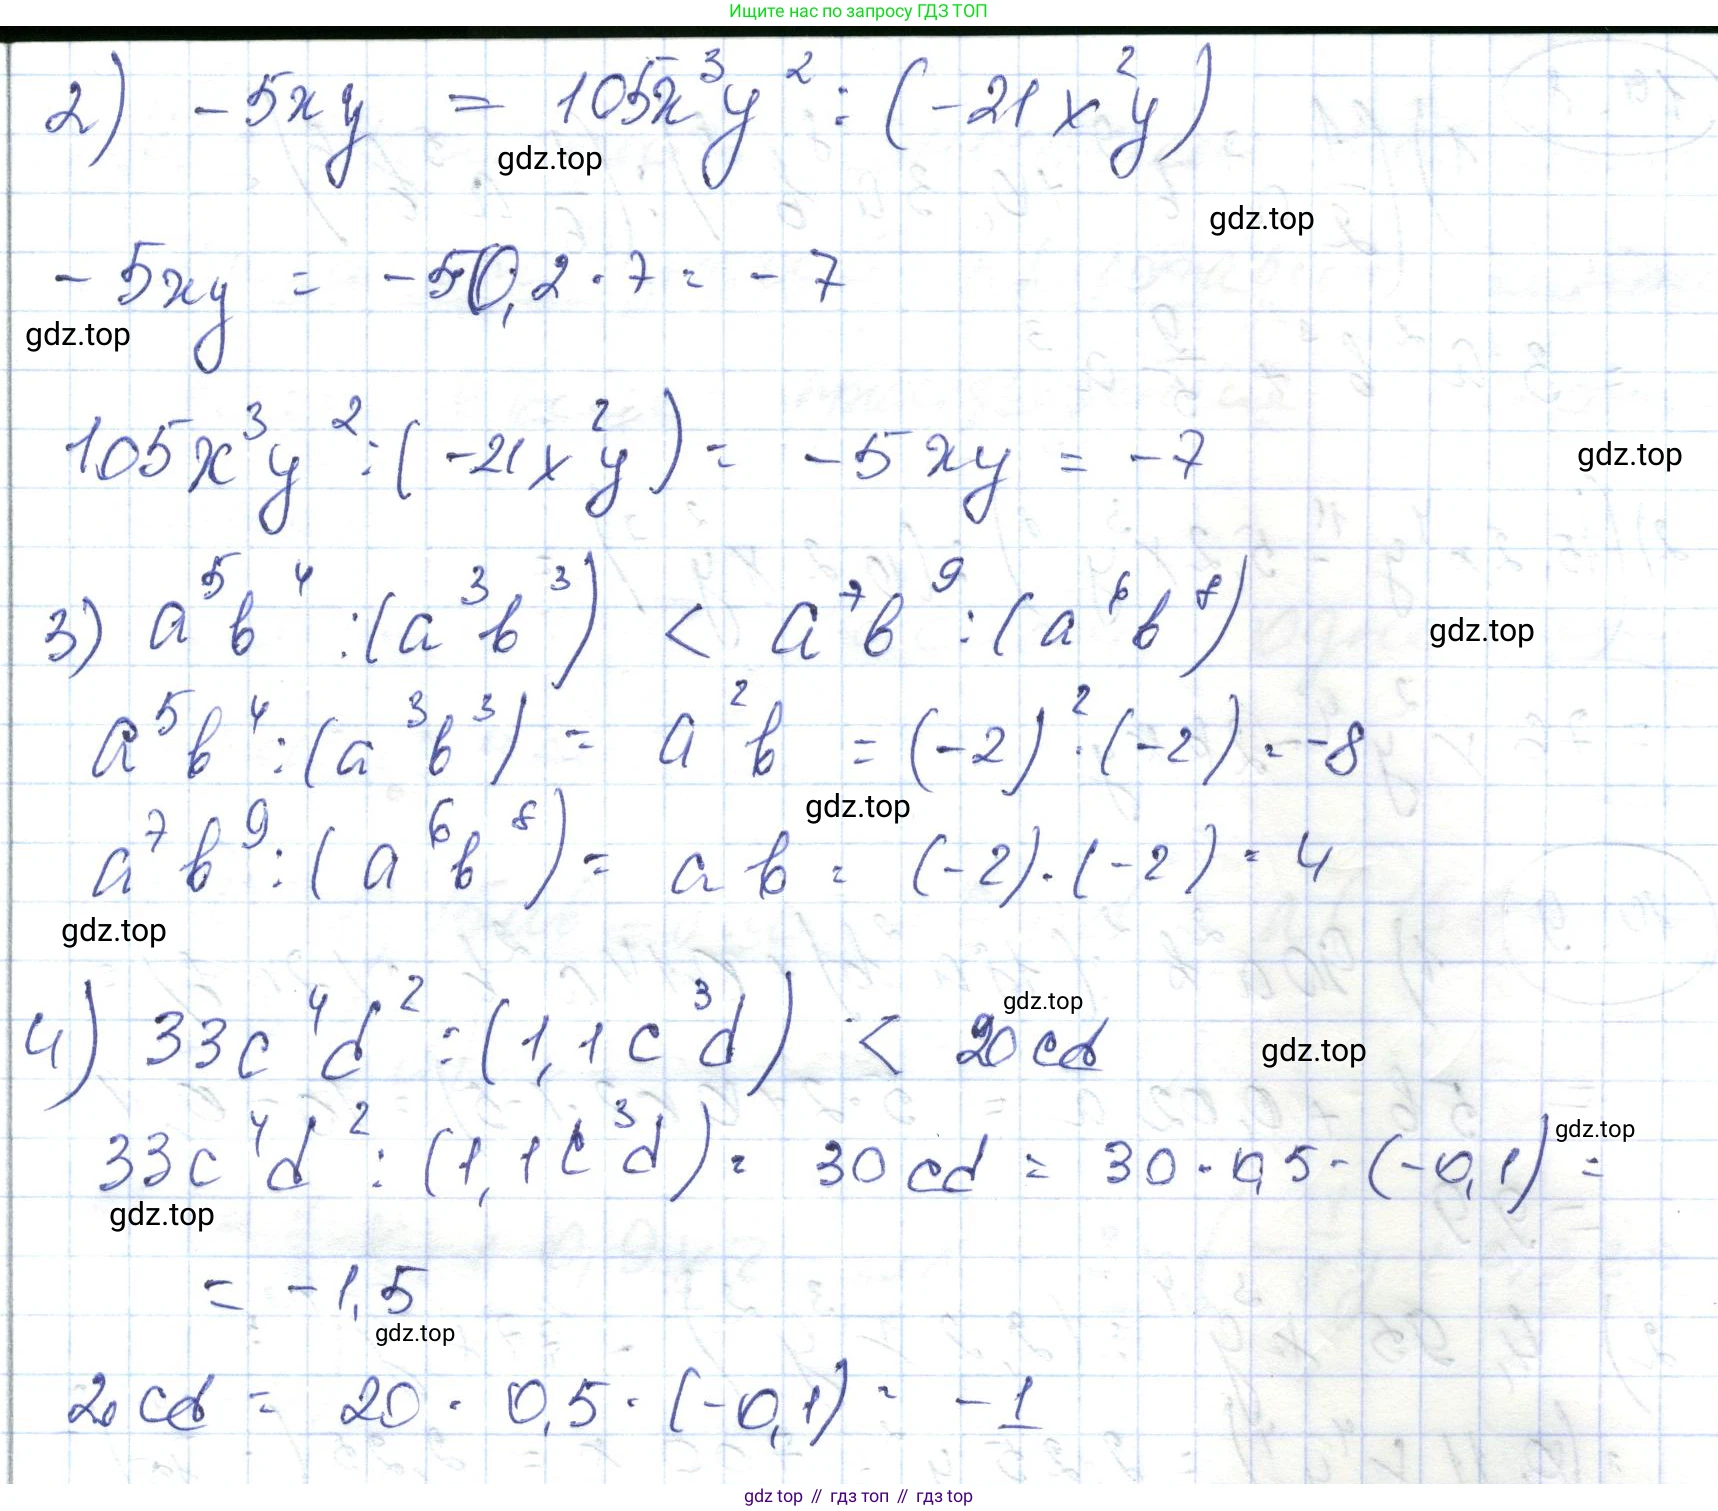 Ищите нас по запросу ГДЗ ТОП
2) -5xy = 105x³y² : (-21x²y)
gdz.top
gdz.top
-5xy = -5·0,2·7 = -7
gdz.top
105x³y² : (-21x²y) = -5xy = -7
gdz.top
3) a⁵b⁴ : (a³b³) < a⁷b⁹ : (a⁶b⁸)
gdz.top
a⁵b⁴ : (a³b³) = a²b = (-2)²·(-2) = -8
gdz.top
a⁷b⁹ : (a⁶b⁸) = ab = (-2)·(-2) = 4
gdz.top
gdz.top
4) 33c⁴d² : (1,1c³d) < 20cd
gdz.top
gdz.top
33c⁴d² : (1,1c³d) = 30cd = 30·0,5·(-0,1) =
gdz.top
= -1,5
gdz.top
20cd = 20·0,5·(-0,1) = -1
gdz top // гдз топ // гдз top